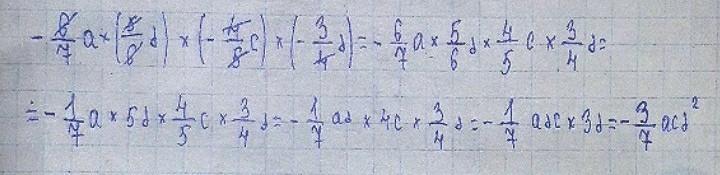 -6/7 a × (5/6 d) × (-4/5 c) × (-3/4 d) = -6/7 a × 5/6 d × 4/5 c × 3/4 d =
= -1/7 a × 5d × 4/5 c × 3/4 d = -1/7 ad × 4c × 3/4 d = -1/7 adc × 3d = -3/7 acd²